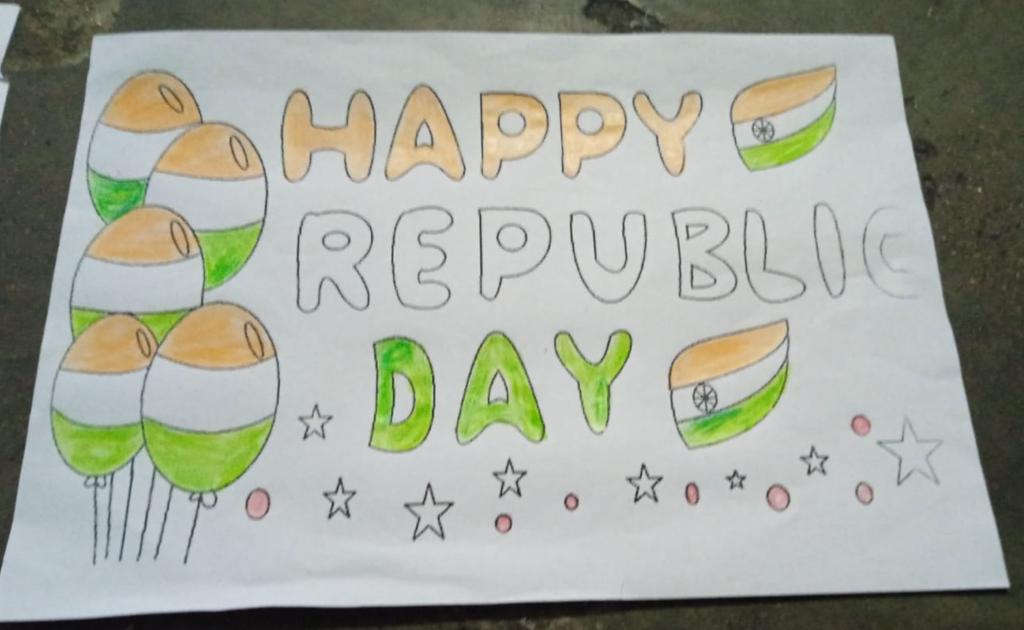 HAPPY
REPUBLIC
DAY